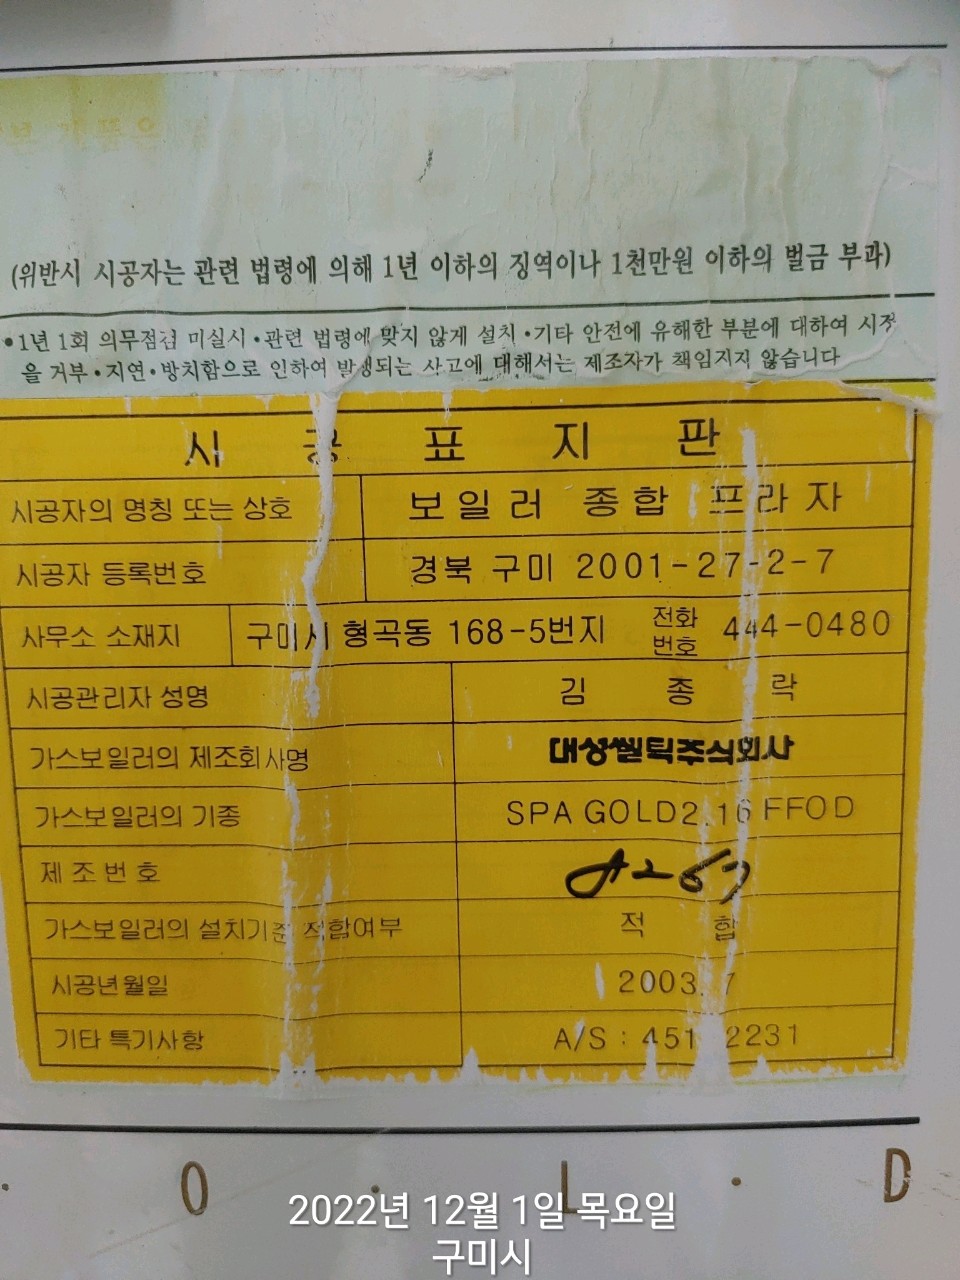 (위반시 시공자는 관련 법령에 의해 1년 이하의 징역이나 1천만원 이하의 벌금 부과)
•1년 1회 의무점검 미실시•관련 법령에 맞지 않게 설치•기타 안전에 유해한 부분에 대하여 시정
을 거부•지연•방치함으로 인하여 발생되는 사고에 대해서는 제조자가 책임지지 않습니다
시 공 표 지 판
시공자의 명칭 또는 상호 보일러 종합 프라자
시공자 등록번호 경북 구미 2001-27-2-7
사무소 소재지 구미시 형곡동 168-5번지 전화번호 444-0480
시공관리자 성명 김 종 락
가스보일러의 제조회사명 대성쎌틱주식회사
가스보일러의 기종 SPA GOLD2.16 FFOD
제조번호
가스보일러의 설치기준 적합여부 적 합
시공년월일 2003. 7
기타 특기사항 A/S : 451 2231
· O · L · D
2022년 12월 1일 목요일
구미시